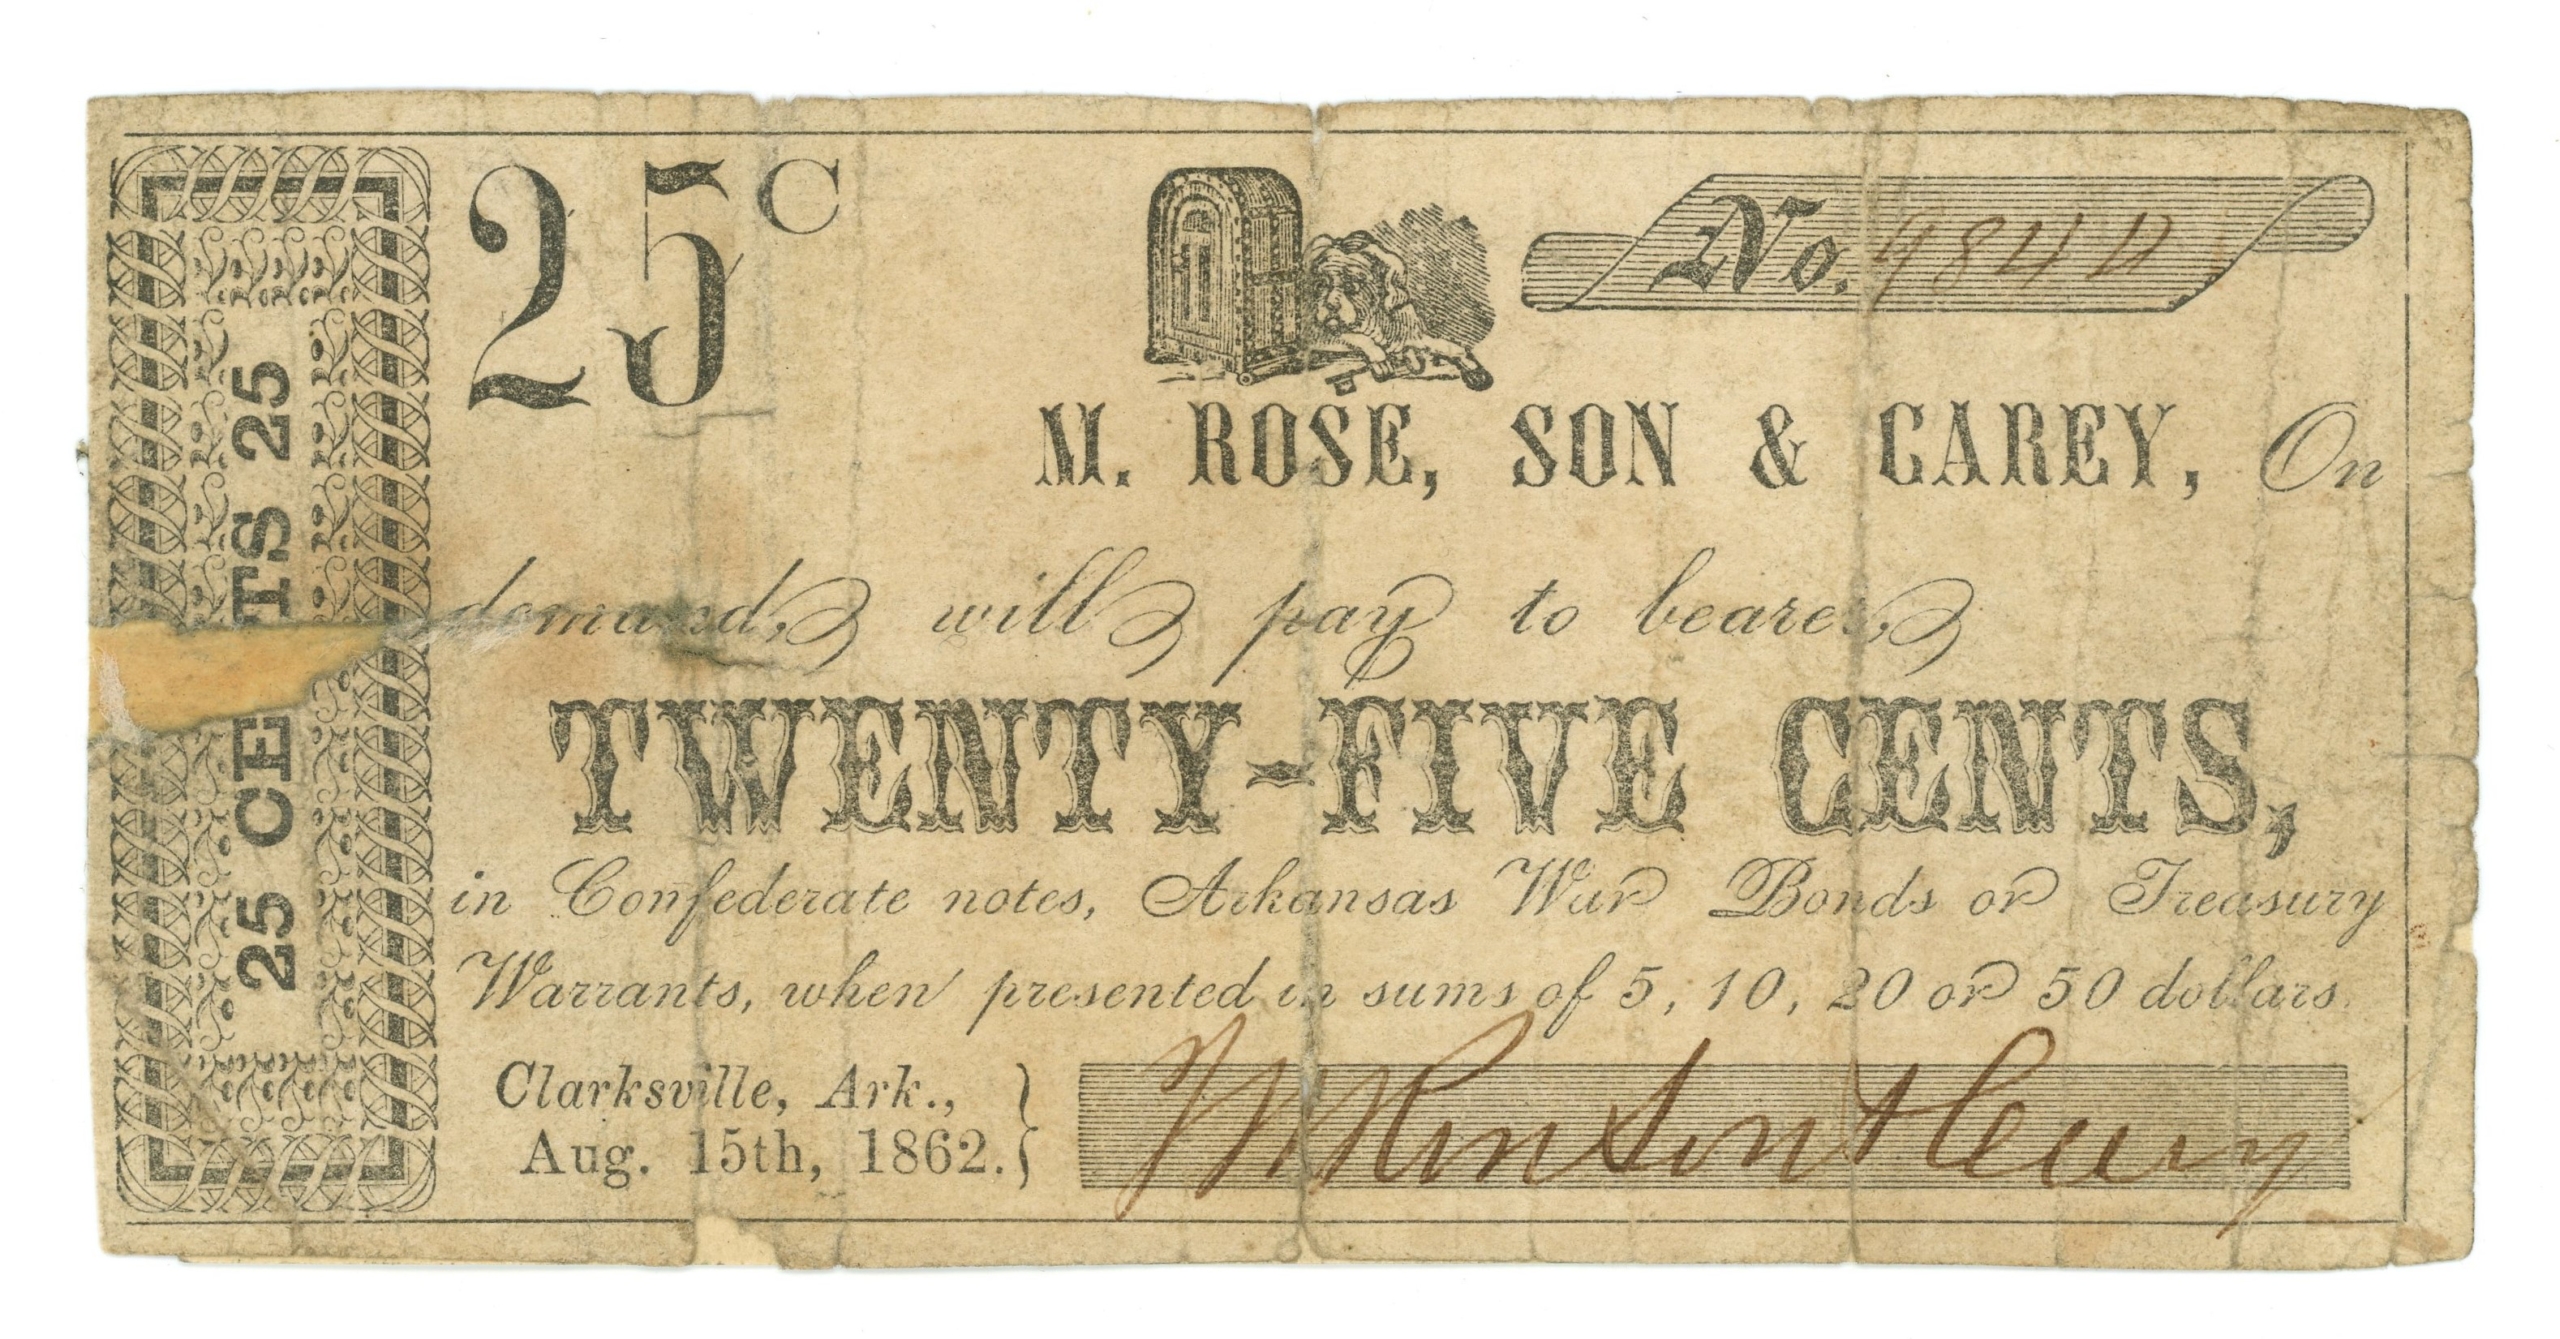 25 CE TS 25
25 C
No. 9844
M. ROSE, SON & CAREY, On
demand, will pay to bearer,
TWENTY-FIVE CENTS,
in Confederate notes, Arkansas War Bonds or Treasury
Warrants, when presented in sums of 5, 10, 20 or 50 dollars.
Clarksville, Ark.,
Aug. 15th, 1862.